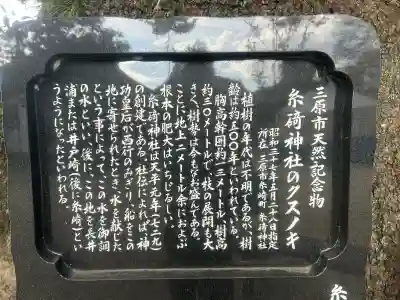 三原市天然記念物
糸碕神社のクスノキ
昭和三十七年五月二十八日指定
所在 三原市糸崎町 糸碕神社
植樹の年代は不明であるが、樹
齢は約五〇〇年といわれている。
胸高幹囲約十三メートル、樹高
約三〇メートルで、枝の展開も大
きく、樹勢は今もなお盛んである。
ことに地上二メートル余におよぶ
根本の肥大はいちじるしい。
糸碕神社は天平元年(七二九)
の創建である。社伝によれば、神
功皇后が西征のみぎり、船をこの
地に寄せられたとき、水を献じた
という事によって、この水を御調
の水といい、後に、この地を長井
浦または井戸崎(後、糸崎)とい
うようになったといわれる。
糸